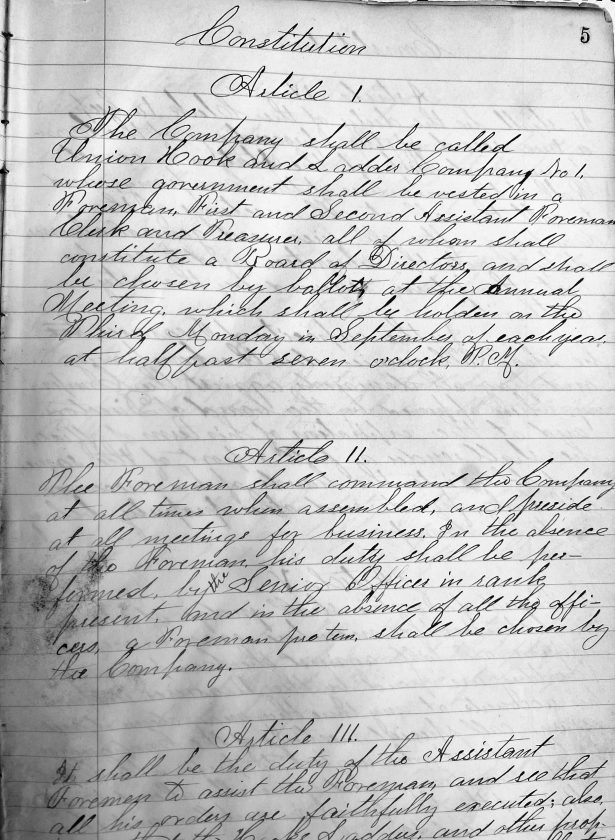 5
Constitution
Article I.
The Company shall be called
Union Hook and Ladder Company No 1,
whose government shall be vested in a
Foreman, First and Second Assistant Foreman
Clerk and Treasurer, all of whom shall
constitute a Board of Directors, and shall
be chosen by ballot, at the annual
Meeting, which shall be holden on the
Third Monday in September of each year,
at half past seven o'clock, P.M.
Article II.
The Foreman shall command the Company
at all times when assembled, and preside
at all meetings for business. In the absence
of the Foreman, his duty shall be per-
formed, by the Senior Officer in rank
present, and in the absence of all the offi-
cers, a Foreman protem, shall be chosen by
the Company.
Article III.
It shall be the duty of the Assistant
Foremen to assist the Foreman, and see that
all his orders are faithfully executed; also,
the Ladders, and other prop-